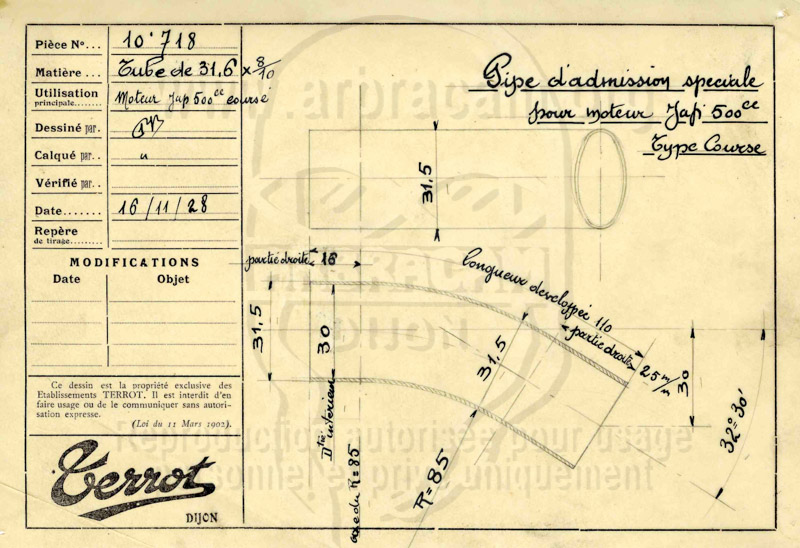 Pièce Nº... 10.718
Matière... Tube de 31,6 x 8/10
Utilisation principale... Moteur Jap 500cc course
Dessiné par.
Calqué par.. "
Vérifié par..
Date....... 16/11/28
Repère de tirage..
MODIFICATIONS
Date Objet
Ce dessin est la propriété exclusive des
Etablissements TERROT. Il est interdit d'en
faire usage ou de le communiquer sans autori-
sation expresse.
(Loi du 11 Mars 1902).
Terrot
DIJON
Pipe d'admission speciale
pour moteur Jap 500cc
Type Course
31,5
partie droite 16
longueur developpée 110
partie droite
25 m/m
31,5
30
31,5
30
Dtre intérieur
axe du R=85
R=85
32º30'
www.arbracan
PHARACAN
DIJON
Reproduction autorisée pour usage
personnel et privé uniquement